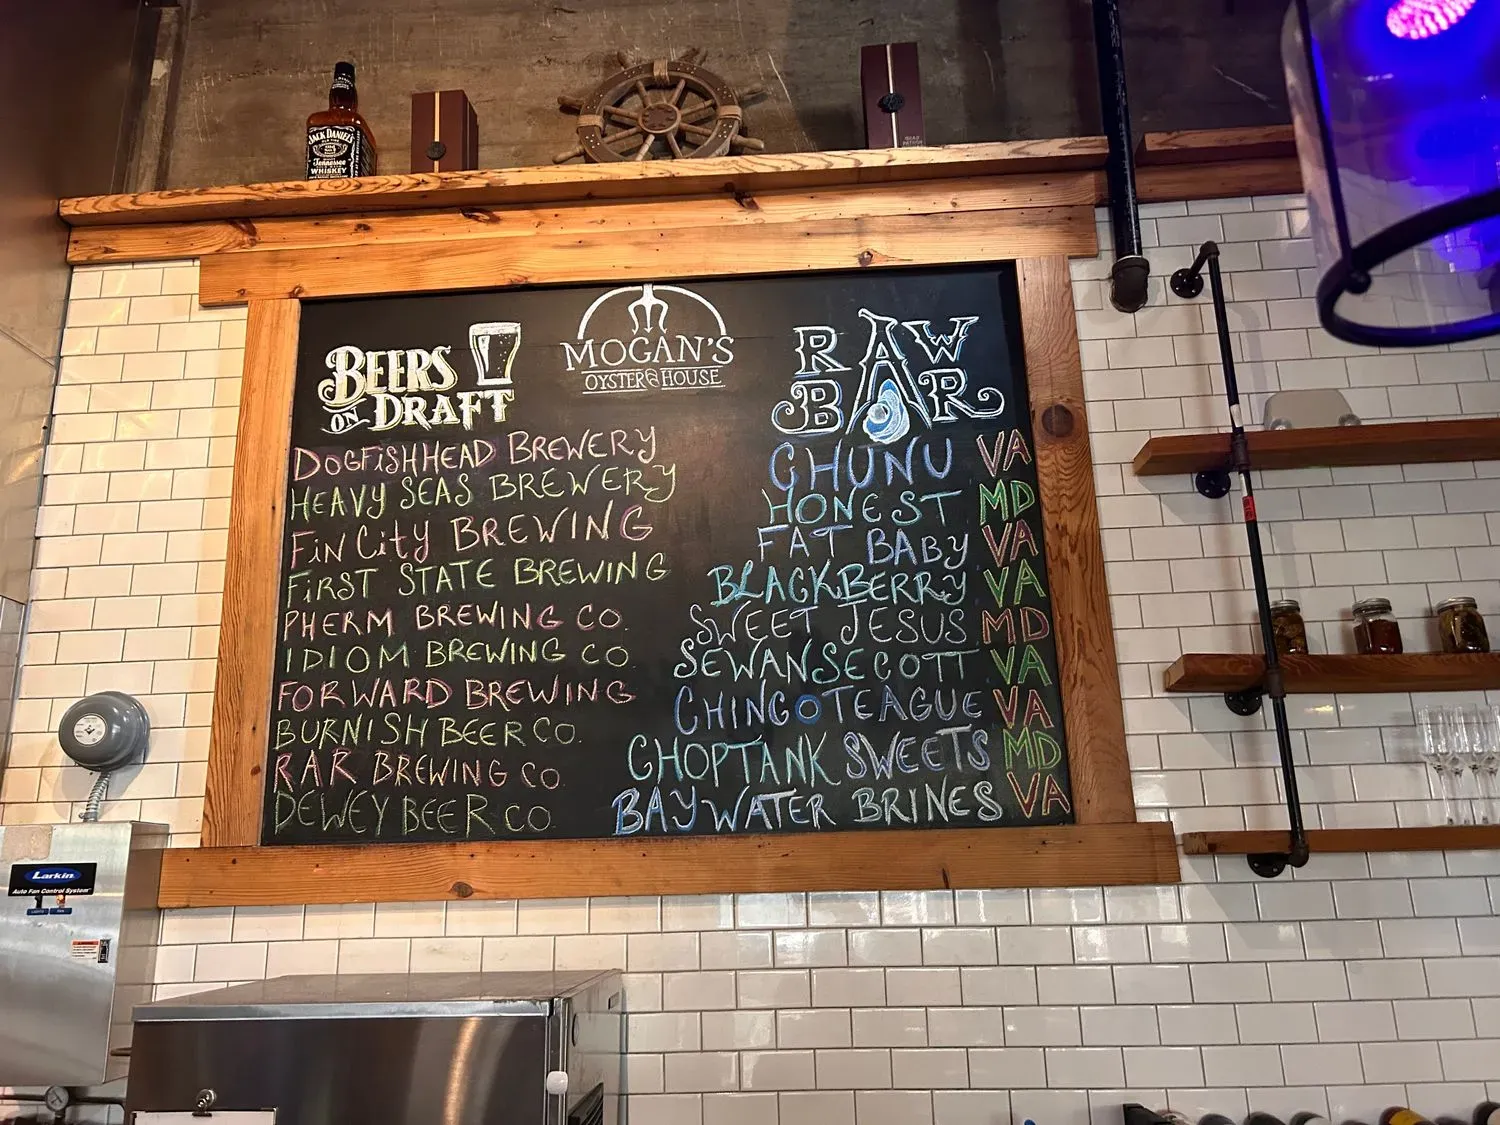 JACK DANIEL'S
Tennessee
WHISKEY
MOGAN'S
OYSTER HOUSE
BEERS
ON DRAFT
DOGFISHHEAD BREWERY
HEAVY SEAS BREWERY
FIN CITY BREWING
FIRST STATE BREWING
PHERM BREWING CO.
IDIOM BREWING CO.
FORWARD BREWING
BURNISH BEER CO.
RAR BREWING CO.
DEWEY BEER CO.
RAW
BAR
CHUNU VA
HONEST MD
FAT BABY VA
BLACKBERRY VA
SWEET JESUS MD
SEWANSECOTT VA
CHINCOTEAGUE VA
CHOPTANK SWEETS MD
BAYWATER BRINES VA
Larkin
Auto Fan Control System